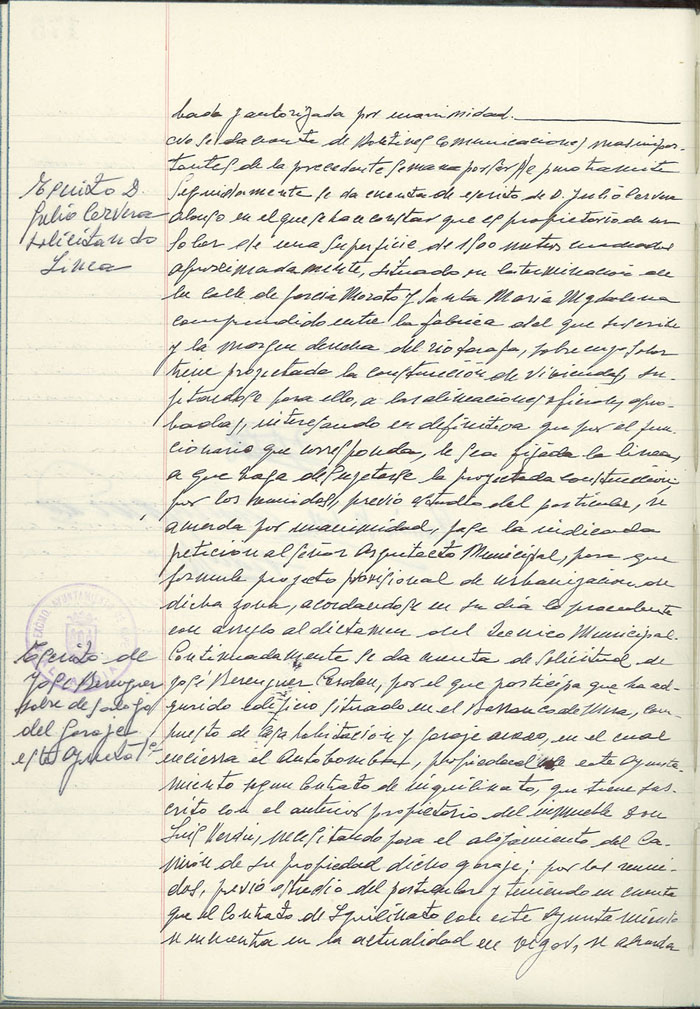 bada y autorizada por unanimidad.
se da cuenta de Boletines Comunicaciones mas impor-
tantes de la precedente semana por ser de puro tramite
Escrito D.
Julio Cervera
solicitando
Linea
Seguidamente se da cuenta de escrito de D. Julio Cervera
Alonso en el que se hace constar que es propietario de un
Solar de una superficie de 1500 metros cuadrados
aproximadamente, situado en la terminación de
la calle de Garcia Morato y Santa Maria Magdalena
comprendido entre la fabrica del que suscribe
y la margen derecha del rio Tarafa, sobre cuyo solar
tiene proyectada la construcción de Viviendas, su-
jetandose para ello, a las alineaciones oficiales apro-
badas, interesando en definitiva que por el fun-
cionario que corresponda, le sea fijada la linea,
a que haya de sujetarse la proyectada construcción,
por los reunidos, previo estudio del particular, se
acuerda por unanimidad, pase la indicada
peticion al Señor Arquitecto Municipal, para que
formule proyecto provisional de urbanizacion de
dicha zona, acordandose en su dia lo procedente
con arreglo al dictamen del Tecnico Municipal.
Escrito de
José Berenguer
sobre desalojo
del Garaje
este Ayuntotº
Continuadamente se da cuenta de Solicitud de
José Berenguer Cerdan, por el que participa que ha ad-
quirido edificio situado en el Barranco de Uxsa, com-
puesto de casa habitacion y Garaje anexo, en el cual
encierra el Autobomba, propiedad de este Ayunta-
miento segun Contrato de inquilinato, que tiene sus-
crito con el anterior propietario del inmueble Don
Luis Verdu, necesitando para el alojamiento del Ca-
mión de su propiedad dicho garaje; por los reuni-
dos, previo estudio del particular y teniendo en cuenta
que el Contrato de Iquilinato con este Ayuntamiento
se encuentra en la actualidad en vigor, se acuerda